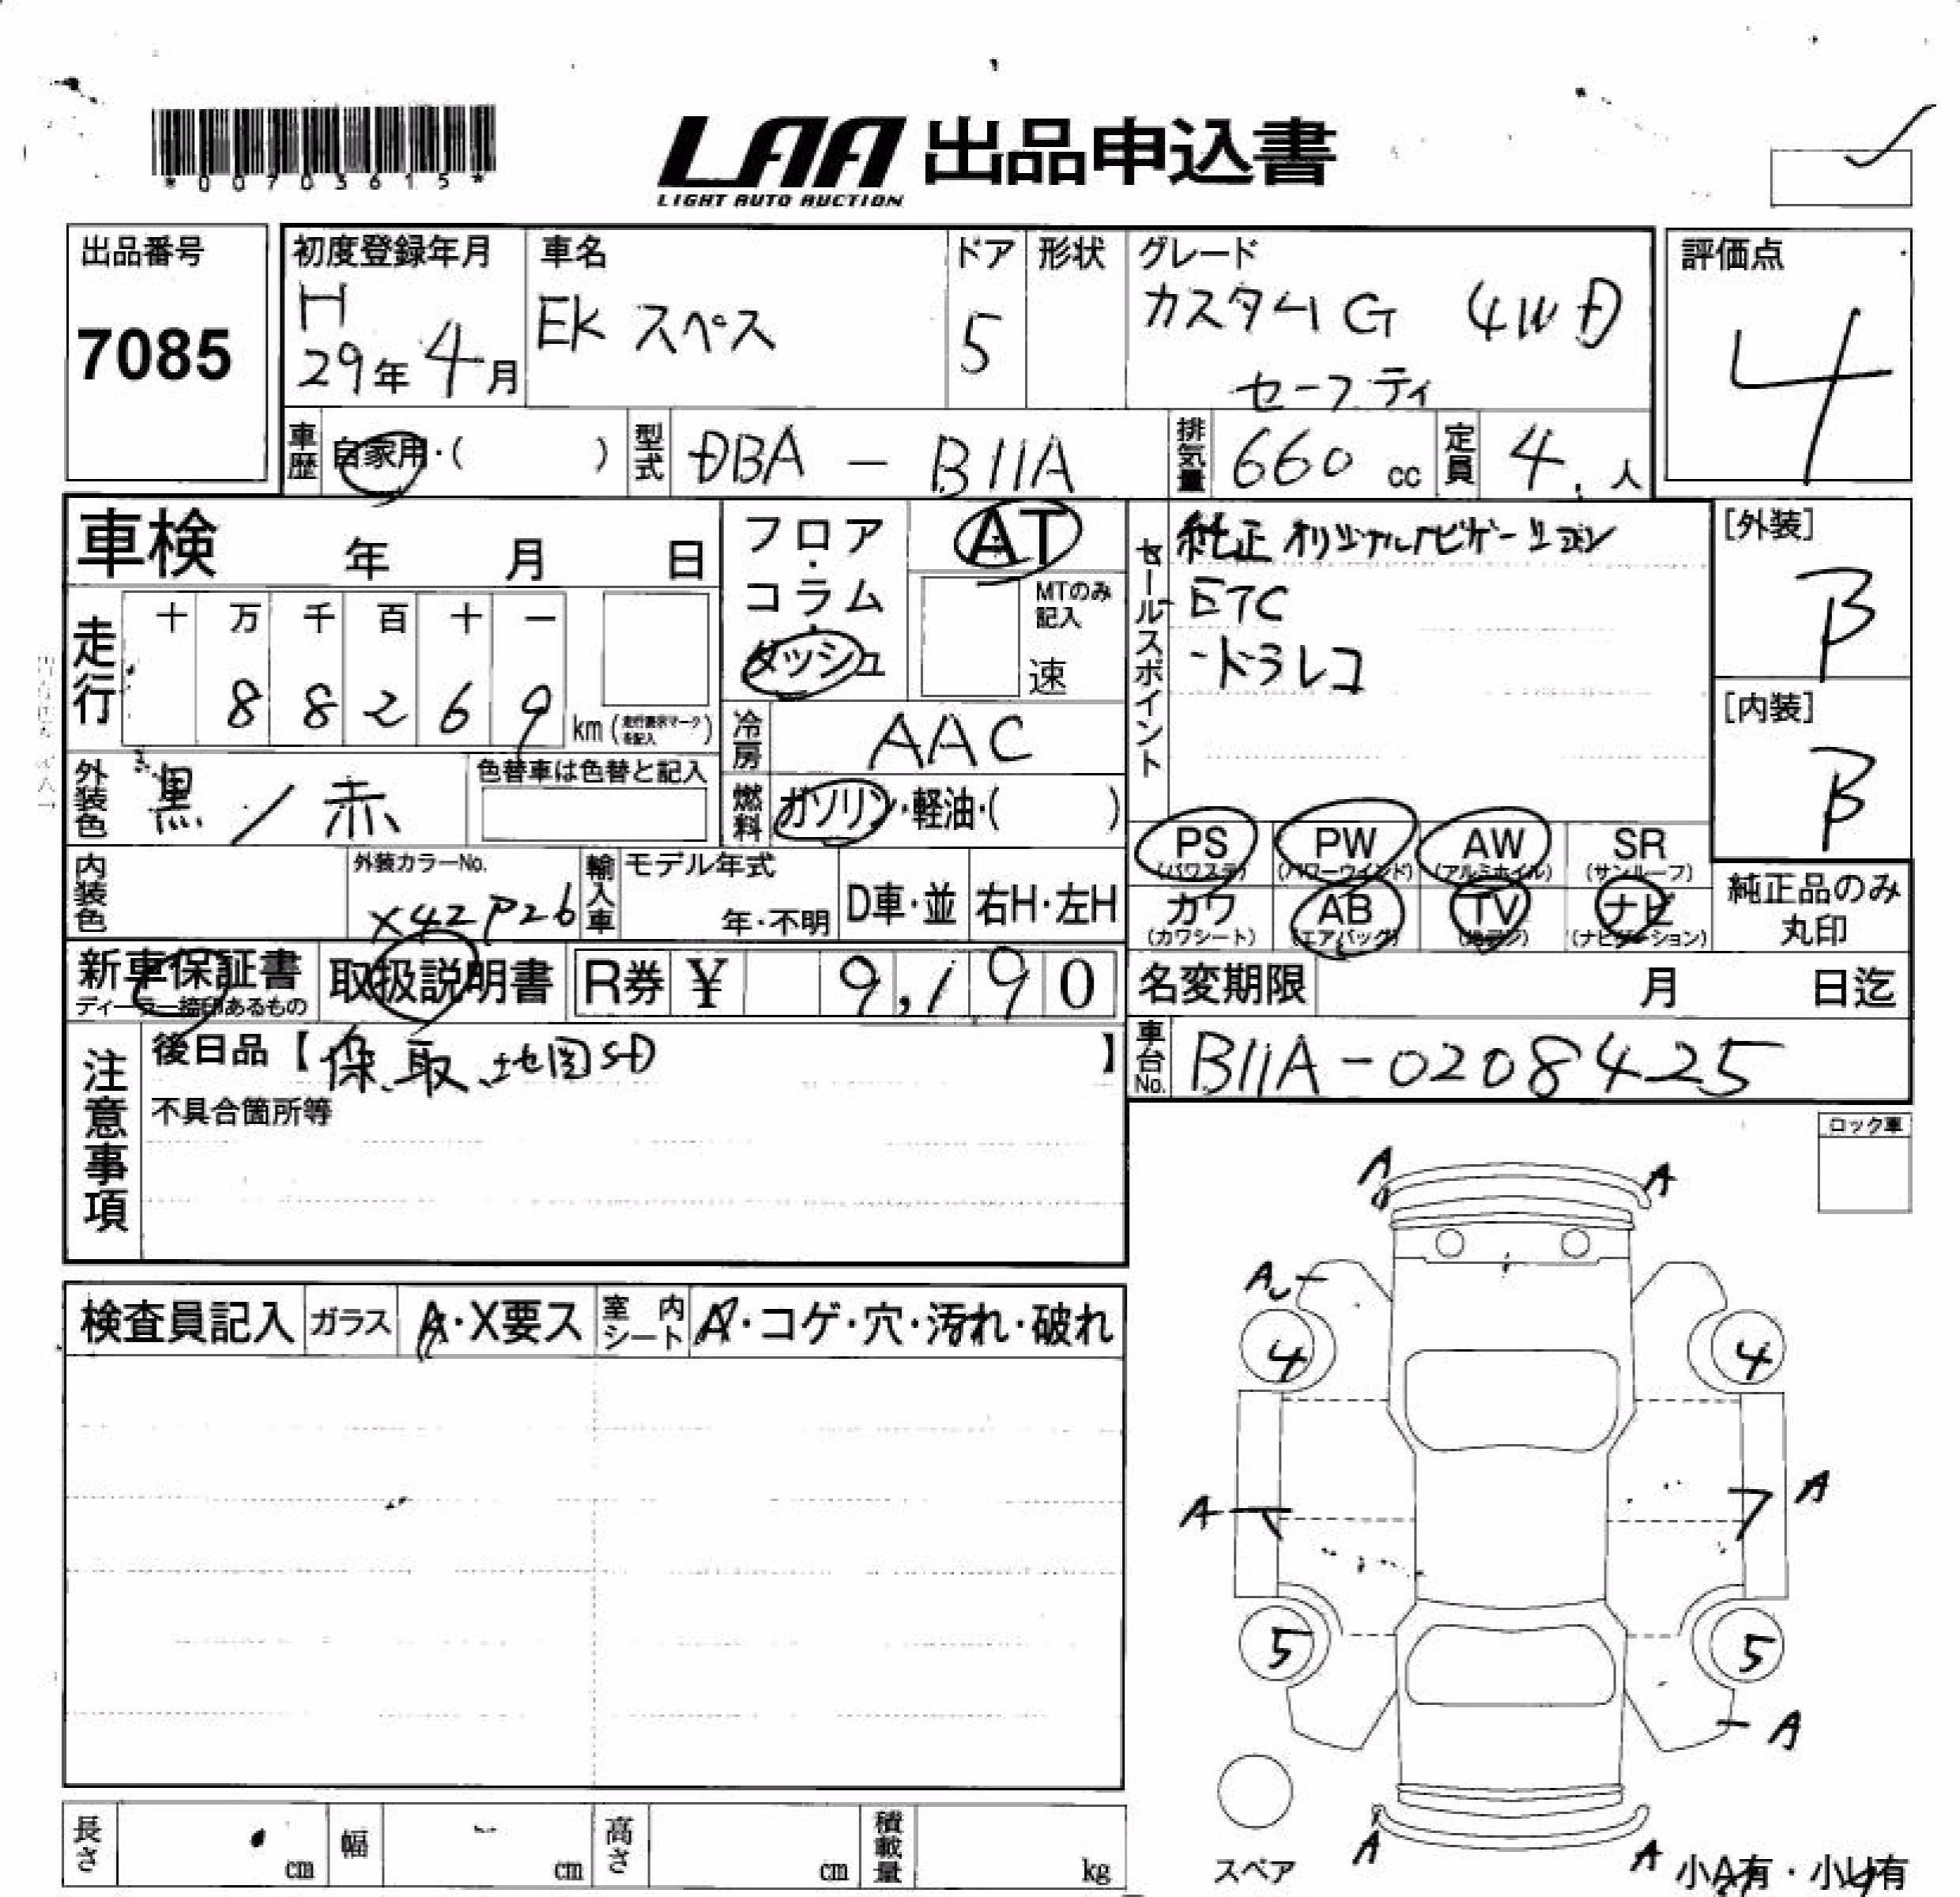 *00703615*
LAA 出品申込書
LIGHT AUTO AUCTION
出品番号
7085
初度登録年月
H
29年 4月
車名
EK スペース
ドア
5
形状
グレード
カスタム G 4WD
セーフティ
評価点
4
車歴 自家用・( )
型式 DBA - B11A
排気量 660 cc
定員 4 人
車検 年 月 日
フロア・コラム・ダッシュ
AT
MTのみ記入
速
セールスポイント
純正 オリジナルナビゲーション
ETC
ドラレコ
[外装]
B
[内装]
B
走行
十 万 千 百 十 一
8 8 2 6 9
km (走行表示マークを記入)
冷房 AAC
外装色 黒 / 赤
色替車は色替と記入
燃料 ガソリン・軽油・( )
PS (パワステ)
PW (パワーウインド)
AW (アルミホイル)
SR (サンルーフ)
カワ (カワシート)
AB (エアバッグ)
TV (地デジ)
ナビ (ナビゲーション)
純正品のみ
丸印
内装色
外装カラーNo.
X42 P26
輸入車
モデル年式
年・不明
D車・並
右H・左H
新車保証書
ディーラー捺印あるもの
取扱説明書
R券 ¥ 9,190
名変期限 月 日迄
注意事項
後日品【保、取、地図SD】
不具合箇所等
車台No. B11A-0208425
ロック車
検査員記入 ガラス A・X要ス 室内シート A・コゲ・穴・汚れ・破れ
A A
A
4 4
A A
5 5
A
A A
スペア
小A有・小U有
長さ cm 幅 cm 高さ cm 積載量 kg